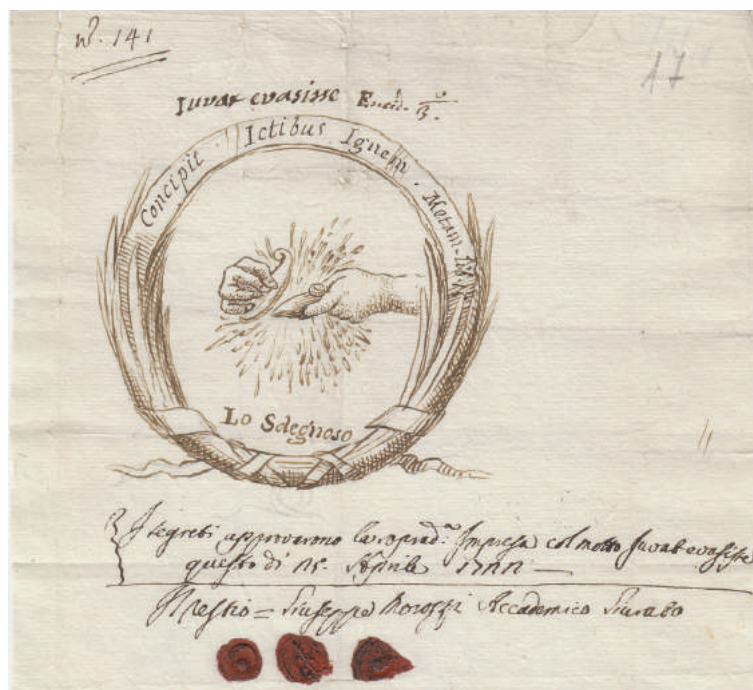 N.º 141
17
Iuvat evasisse Eneid. 3.
Concipit Ictibus Ignem. Metam.
Lo Sdegnoso
I segreti approvarono la soprad.ª Impresa col motto Iuvat evasisse
questo dì 15. Aprile
Giuseppe Accademico